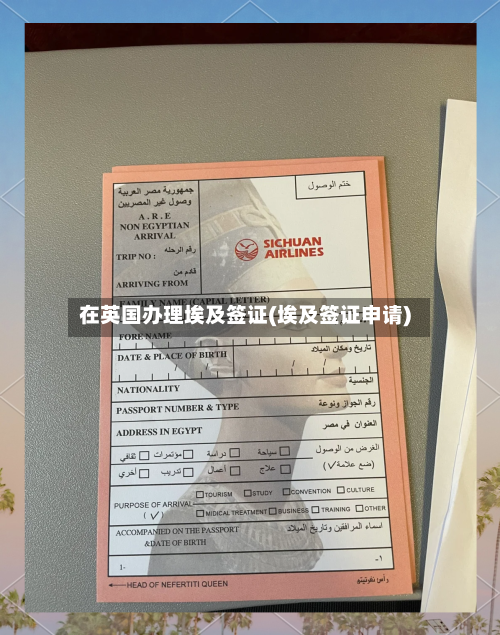 جمهورية مصر العربية
وصول غير المصريين
A . R . E
NON EGYPTIAN
ARRIVAL
ختم الوصول
رقم الرحله
TRIP NO :
SICHUAN
AIRLINES
قادم من
ARRIVING FROM
FAMILY NAME (CAPIAL LETTER)
在英国办理埃及签证(埃及签证申请)
FORE NAME
تاريخ ومكان الميلاد
DATE & PLACE OF BIRTH
الجنسية
NATIONALITY
رقم الجواز ونوعة
PASSPORT NUMBER & TYPE
العنوان في مصر
ADDRESS IN EGYPT
الغرض من الوصول
(ضع علامة✓)
سياحة دراسة مؤتمرات ثقافي
علاج أعمال تدريب أخري
PURPOSE OF ARRIVAL
( ✓ )
TOURISM STUDY CONVENTION CULTURE
MIDICAL TREATMENT BUSINESS TRAINING OTHER
اسماء المرافقين وتاريخ الميلاد
ACCOMPANIED ON THE PASSPORT
&DATE OF BIRTH
1-
١-
HEAD OF NEFERTITI QUEEN
رأس نفرتيتو